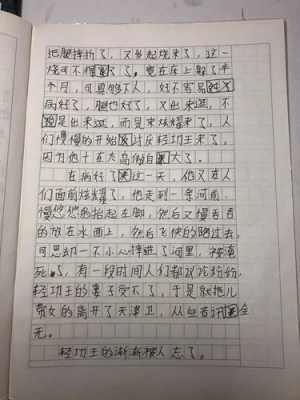 把腿摔折了，又发起烧来了，这一
烧可不得了了。竟在床上躺了半
个月，可真够下人，好不容易
病好了，腿也好了，又出来逛，不
是出来逛，而是来炫耀来了，人
们慢慢的开始讨厌轻功王来了，
因为他十在太高傲自大了。
在病好了这一天，他又在人
们面前炫耀了，他走到一条河前，
慢悠悠的抬起左脚，然后又慢吞吞
的放在水面上，然后飞快的跑过去，
可思却一不小心摔进了河里，被淹
死了，有一段时间人们都议论纷纷，
轻功王的妻子受不了，于是就抱儿
带女的离开了天津卫，从此杳全
无。
轻功王的渐渐被人忘了。